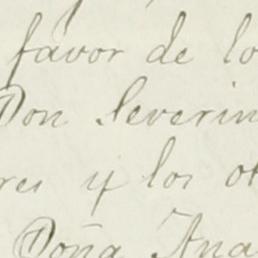 favor de lo
Don Severin
res y los ot
Doña Ana